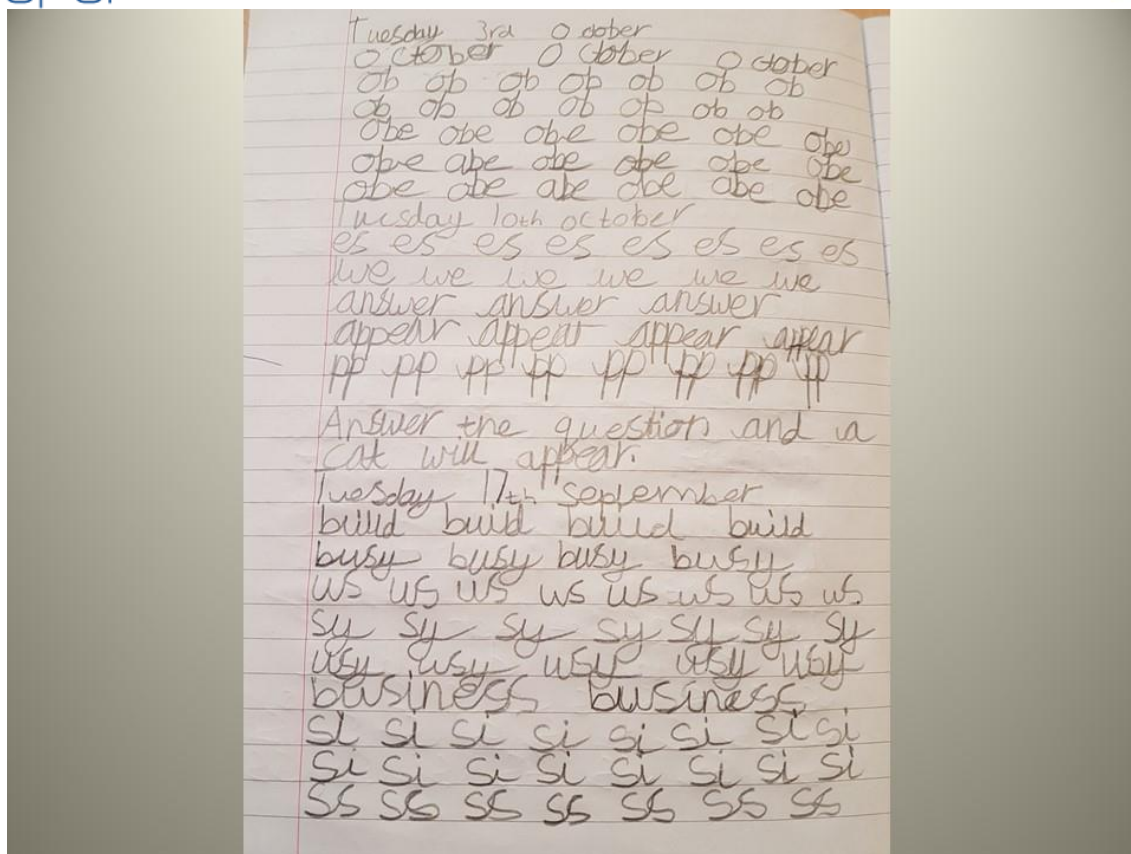 Tuesday 3rd October
October October October
ob ob ob ob ob ob ob
ob ob ob ob ob ob ob
obe obe obe obe obe obe
obe obe obe obe obe obe
obe obe obe obe obe obe
Tuesday 10th october
es es es es es es es es
we we we we we we
answer answer answer
appear appear appear appear
pp pp pp pp pp pp pp pp
Answer the question and a
cat will appear.
Tuesday 17th September
build build build build
busy busy busy busy
us us us us us us us us
sy sy sy sy sy sy sy
usy usy usy usy usy
business business
si si si si si si si si
si si si si si si si si
ss ss ss ss ss ss ss